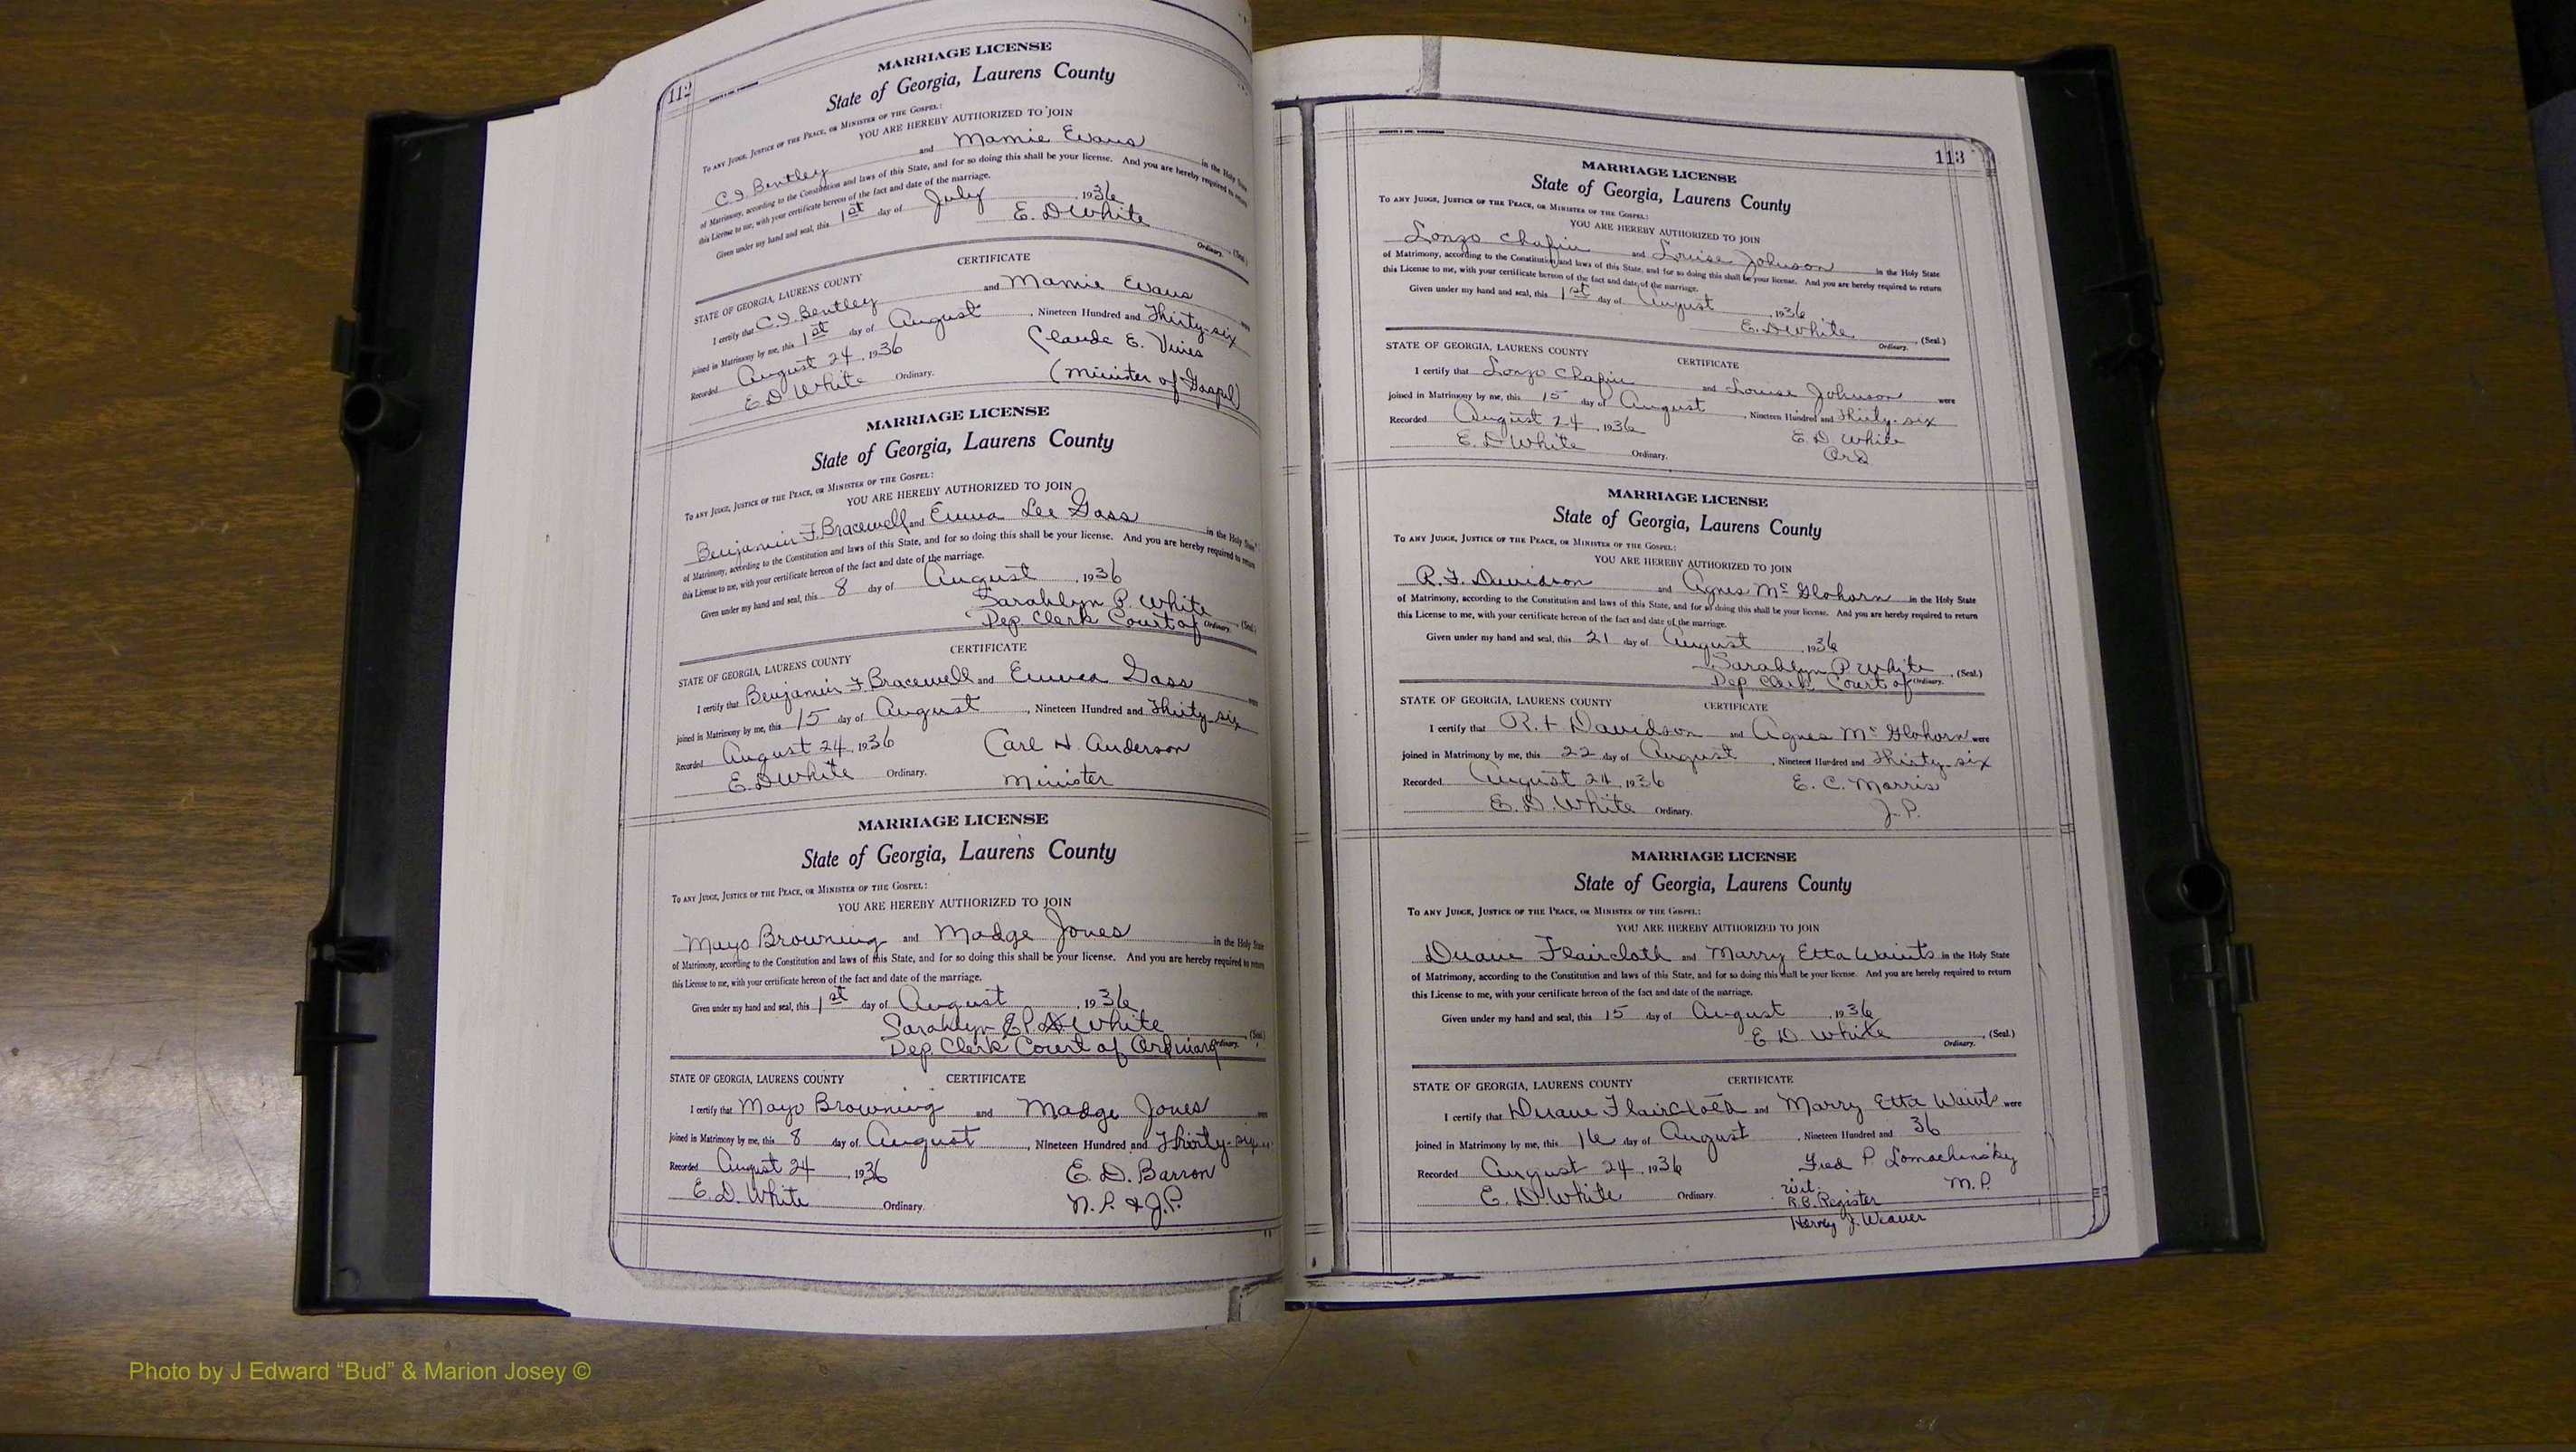 112
MARRIAGE LICENSE
State of Georgia, Laurens County
To any Judge, Justice of the Peace, or Minister of the Gospel:
YOU ARE HEREBY AUTHORIZED TO JOIN
C. I. Bentley and Mamie Evans in the Holy State
of Matrimony, according to the Constitution and laws of this State, and for so doing this shall be your license. And you are hereby required to return
this License to me, with your certificate hereon of the fact and date of the marriage.
Given under my hand and seal, this 1st day of July, 1936
E. D White
Ordinary. (Seal.)
CERTIFICATE
STATE OF GEORGIA, LAURENS COUNTY
I certify that C. I. Bentley and Mamie Evans were
joined in Matrimony by me, this 1st day of August, Nineteen Hundred and Thirty-six
Recorded August 24, 1936 Claude E. Vines
E. D White Ordinary. (Minister of Gospel)
MARRIAGE LICENSE
State of Georgia, Laurens County
To any Judge, Justice of the Peace, or Minister of the Gospel:
YOU ARE HEREBY AUTHORIZED TO JOIN
Benjamin F. Bracewell and Emma Lee Gass in the Holy State
of Matrimony, according to the Constitution and laws of this State, and for so doing this shall be your license. And you are hereby required to return
this License to me, with your certificate hereon of the fact and date of the marriage.
Given under my hand and seal, this 8 day of August, 1936
Sarahlyn P. White
Dep. Clerk Court of Ordinary. (Seal.)
CERTIFICATE
STATE OF GEORGIA, LAURENS COUNTY
I certify that Benjamin F Bracewell and Emma Gass were
joined in Matrimony by me, this 15 day of August, Nineteen Hundred and Thirty-six
Recorded August 24, 1936 Carl H. Anderson
E. D White Ordinary. Minister
MARRIAGE LICENSE
State of Georgia, Laurens County
To any Judge, Justice of the Peace, or Minister of the Gospel:
YOU ARE HEREBY AUTHORIZED TO JOIN
Mayo Browning and Madge Jones in the Holy State
of Matrimony, according to the Constitution and laws of this State, and for so doing this shall be your license. And you are hereby required to return
this License to me, with your certificate hereon of the fact and date of the marriage.
Given under my hand and seal, this 1st day of August, 1936
Sarahlyn P. White
Dep. Clerk Court of Ordinary Ordinary. (Seal.)
STATE OF GEORGIA, LAURENS COUNTY CERTIFICATE
I certify that Mayo Browning and Madge Jones were
joined in Matrimony by me, this 8 day of August, Nineteen Hundred and Thirty-six
Recorded August 24, 1936 E. D. Barron
E. D. White Ordinary. N. P. & J. P.
113
MARRIAGE LICENSE
State of Georgia, Laurens County
To any Judge, Justice of the Peace, or Minister of the Gospel:
YOU ARE HEREBY AUTHORIZED TO JOIN
Lonzo Chafin and Louise Johnson in the Holy State
of Matrimony, according to the Constitution and laws of this State, and for so doing this shall be your license. And you are hereby required to return
this License to me, with your certificate hereon of the fact and date of the marriage.
Given under my hand and seal, this 1st day of August, 1936
E. D White (Seal.)
Ordinary.
STATE OF GEORGIA, LAURENS COUNTY CERTIFICATE
I certify that Lonzo Chafin and Louise Johnson were
joined in Matrimony by me, this 15 day of August, Nineteen Hundred and Thirty-six
Recorded August 24, 1936 E. D. White
E. D White Ordinary. Ord.
MARRIAGE LICENSE
State of Georgia, Laurens County
To any Judge, Justice of the Peace, or Minister of the Gospel:
YOU ARE HEREBY AUTHORIZED TO JOIN
R. F. Davidson and Agnes Mc Glohorn in the Holy State
of Matrimony, according to the Constitution and laws of this State, and for so doing this shall be your license. And you are hereby required to return
this License to me, with your certificate hereon of the fact and date of the marriage.
Given under my hand and seal, this 21 day of August, 1936
Sarahlyn P. White (Seal.)
Dep Clerk Court of Ordinary.
STATE OF GEORGIA, LAURENS COUNTY CERTIFICATE
I certify that R. F Davidson and Agnes Mc Glohorn were
joined in Matrimony by me, this 22 day of August, Nineteen Hundred and Thirty-six
Recorded August 24, 1936 E. C. Morris
E. D. White Ordinary. J. P.
MARRIAGE LICENSE
State of Georgia, Laurens County
To any Judge, Justice of the Peace, or Minister of the Gospel:
YOU ARE HEREBY AUTHORIZED TO JOIN
Duane Flaircloth and Marry Etta Waints in the Holy State
of Matrimony, according to the Constitution and laws of this State, and for so doing this shall be your license. And you are hereby required to return
this License to me, with your certificate hereon of the fact and date of the marriage.
Given under my hand and seal, this 15 day of August, 1936
E D. White (Seal.)
Ordinary.
STATE OF GEORGIA, LAURENS COUNTY CERTIFICATE
I certify that Duane Flaircloth and Marry Etta Waints were
joined in Matrimony by me, this 16 day of August, Nineteen Hundred and 36
Recorded August 24, 1936 Fred P. Lomachinsky
E. D. White Ordinary. wit. M. P.
R. B. Register
Harvey J. Weaver
Photo by J Edward “Bud” & Marion Josey ©